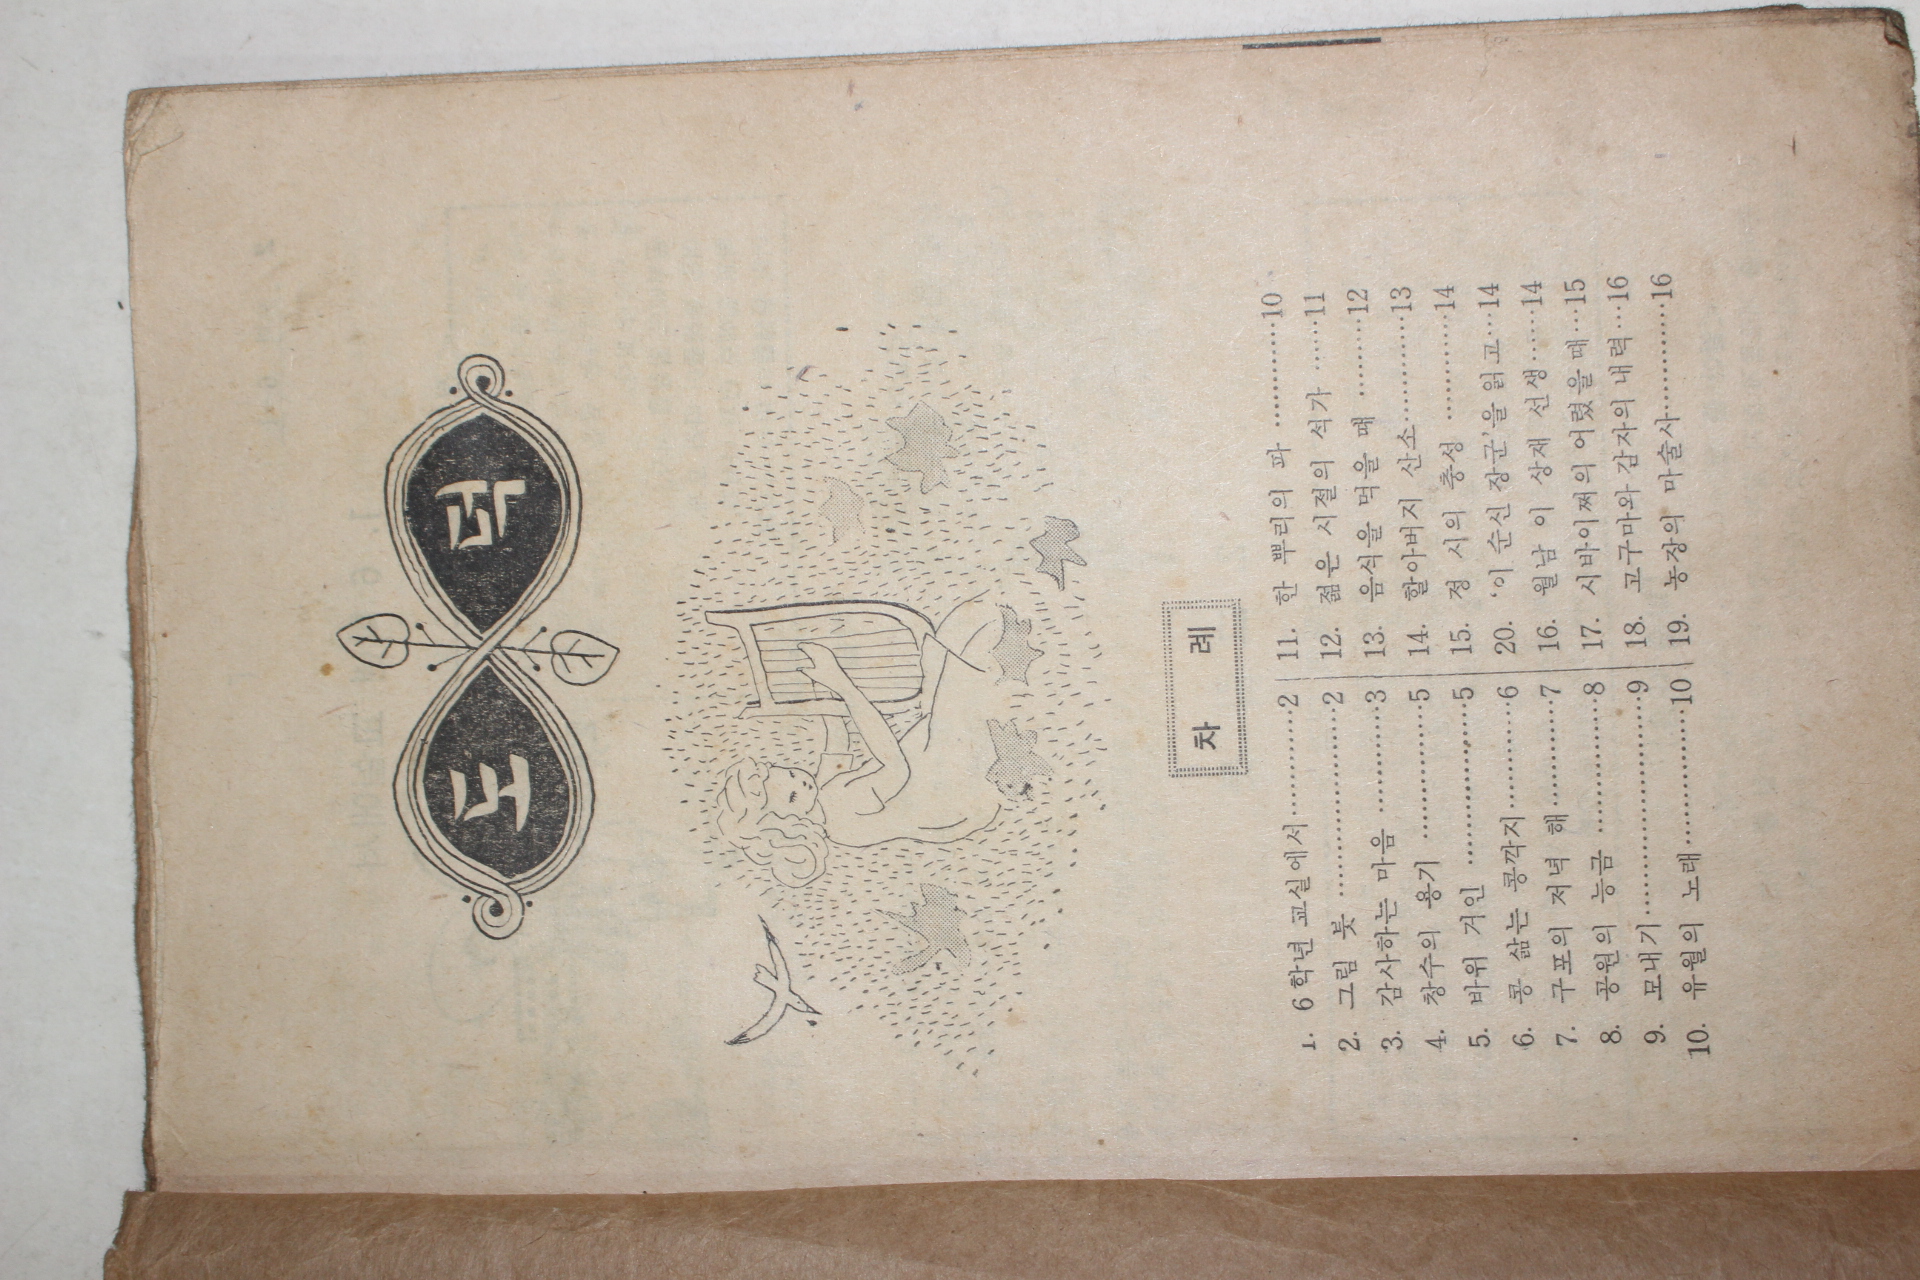 도 덕
차 례
1. 6학년 교실에서…………2
2. 그림 붓 …………………2
3. 감사하는 마음 …………3
4. 창수의 용기 ……………5
5. 바위 거인 ………………5
6. 콩 삶는 콩깍지…………6
7. 구포의 저녁 해…………7
8. 공원의 능금 ……………8
9. 모내기……………………9
10. 유월의 노래……………10
11. 한 뿌리의 파 …………10
12. 젊은 시절의 석가 ……11
13. 음식을 먹을 때 ………12
14. 할아버지 산소…………13
15. 정 시의 충성 …………14
20. ‘이 순신 장군’을 읽고…14
16. 월남 이 상재 선생……14
17. 시바이쩌의 어렸을 때…15
18. 고구마와 감자의 내력…16
19. 농장의 마술사…………16